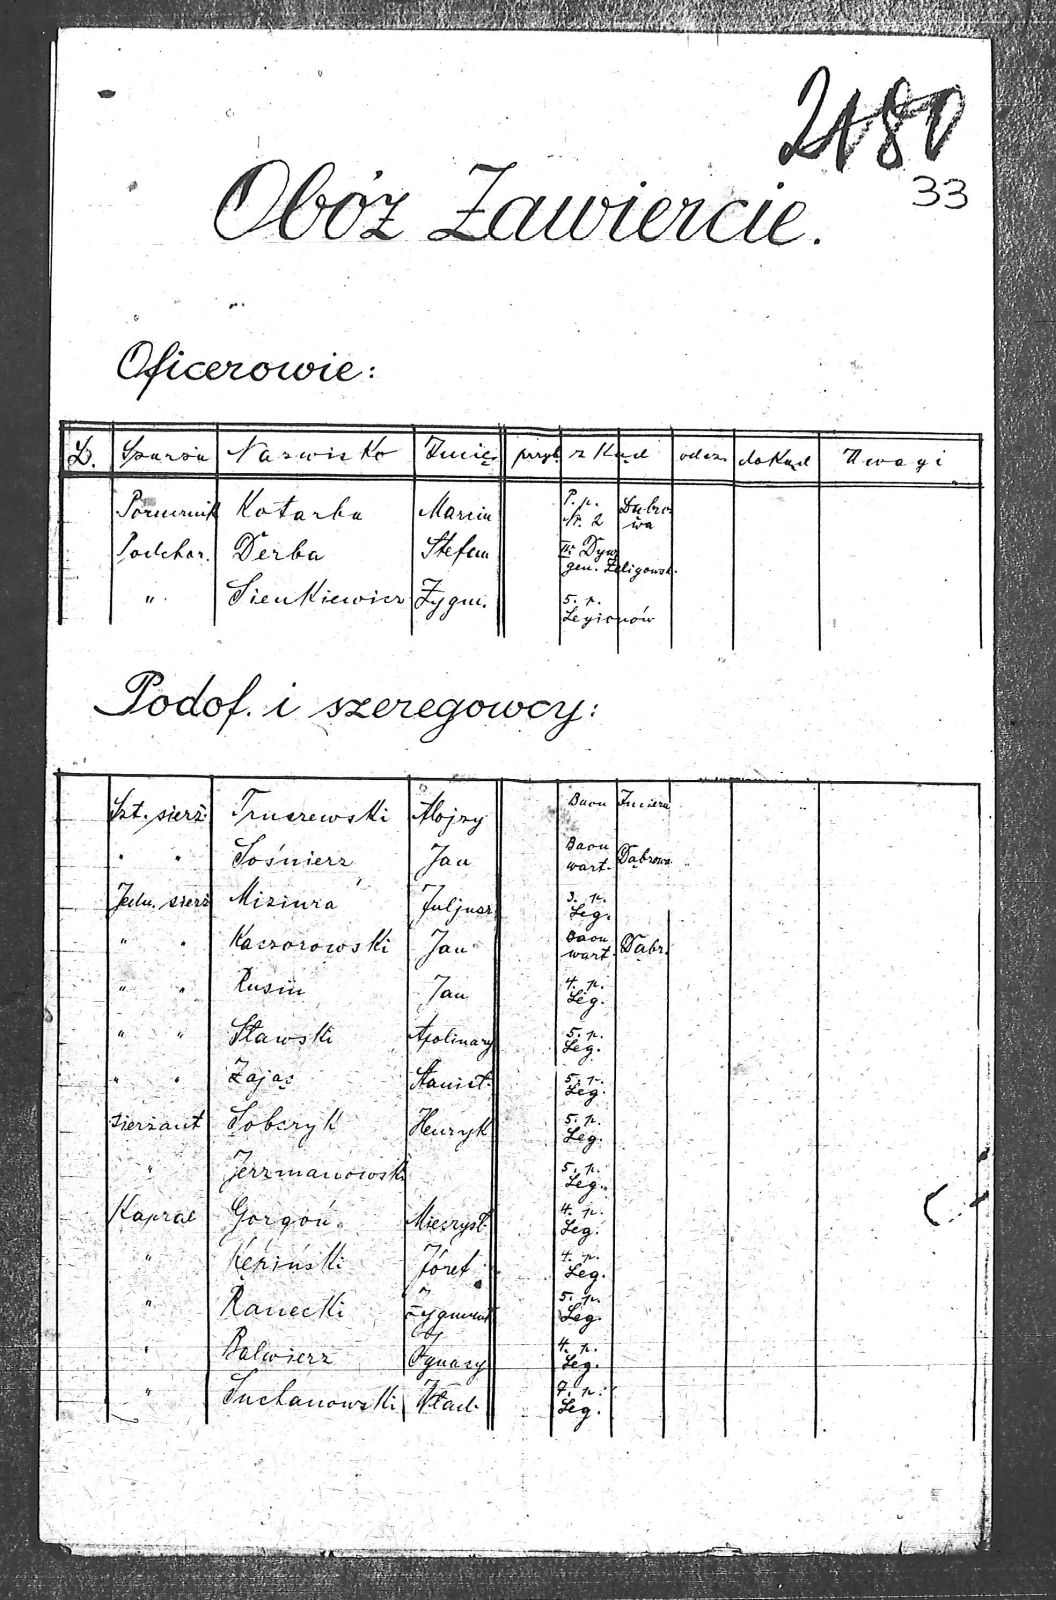 2180
33
Obóz Zawiercie.
Oficerowie:
L. Szarża Nazwisko Imię przyb. z kąd odesz. dokąd Uwagi
Porucznik Kotarba Marcin P. p. Nr. 2 Dąbrowa
Podchor. Derba Stefan III Dyw. gen. Żeligowsk.
" Sienkiewicz Zygm. 5. p. Legionów
Podof. i szeregowcy:
Szt. sierż. Truszewski Alojzy Baon
" " Sośnierz Jan Baon wart. Dąbrowa
Jedn. sierż Miziura Juljusz 3. p. Leg.
" " Kaczorowski Jan Baon wart. Dąbr.
" " Rusin Jan 4. p. Leg.
" " Sławski Apolinary 5. p. Leg.
" " Zając Stanisł. 5. p. Leg.
sierżant Sobczyk Henryk 5. p. Leg.
" Jerzmanowski 5. p. Leg.
Kapral Gorgoń Mieczysł. 4. p. Leg.
" Kępiński Józef 4. p. Leg.
" Ranecki Zygmunt 5. p. Leg.
" Balwierz Ignacy 4. p. Leg.
" Suchanowski Wład. 7. p. Leg.